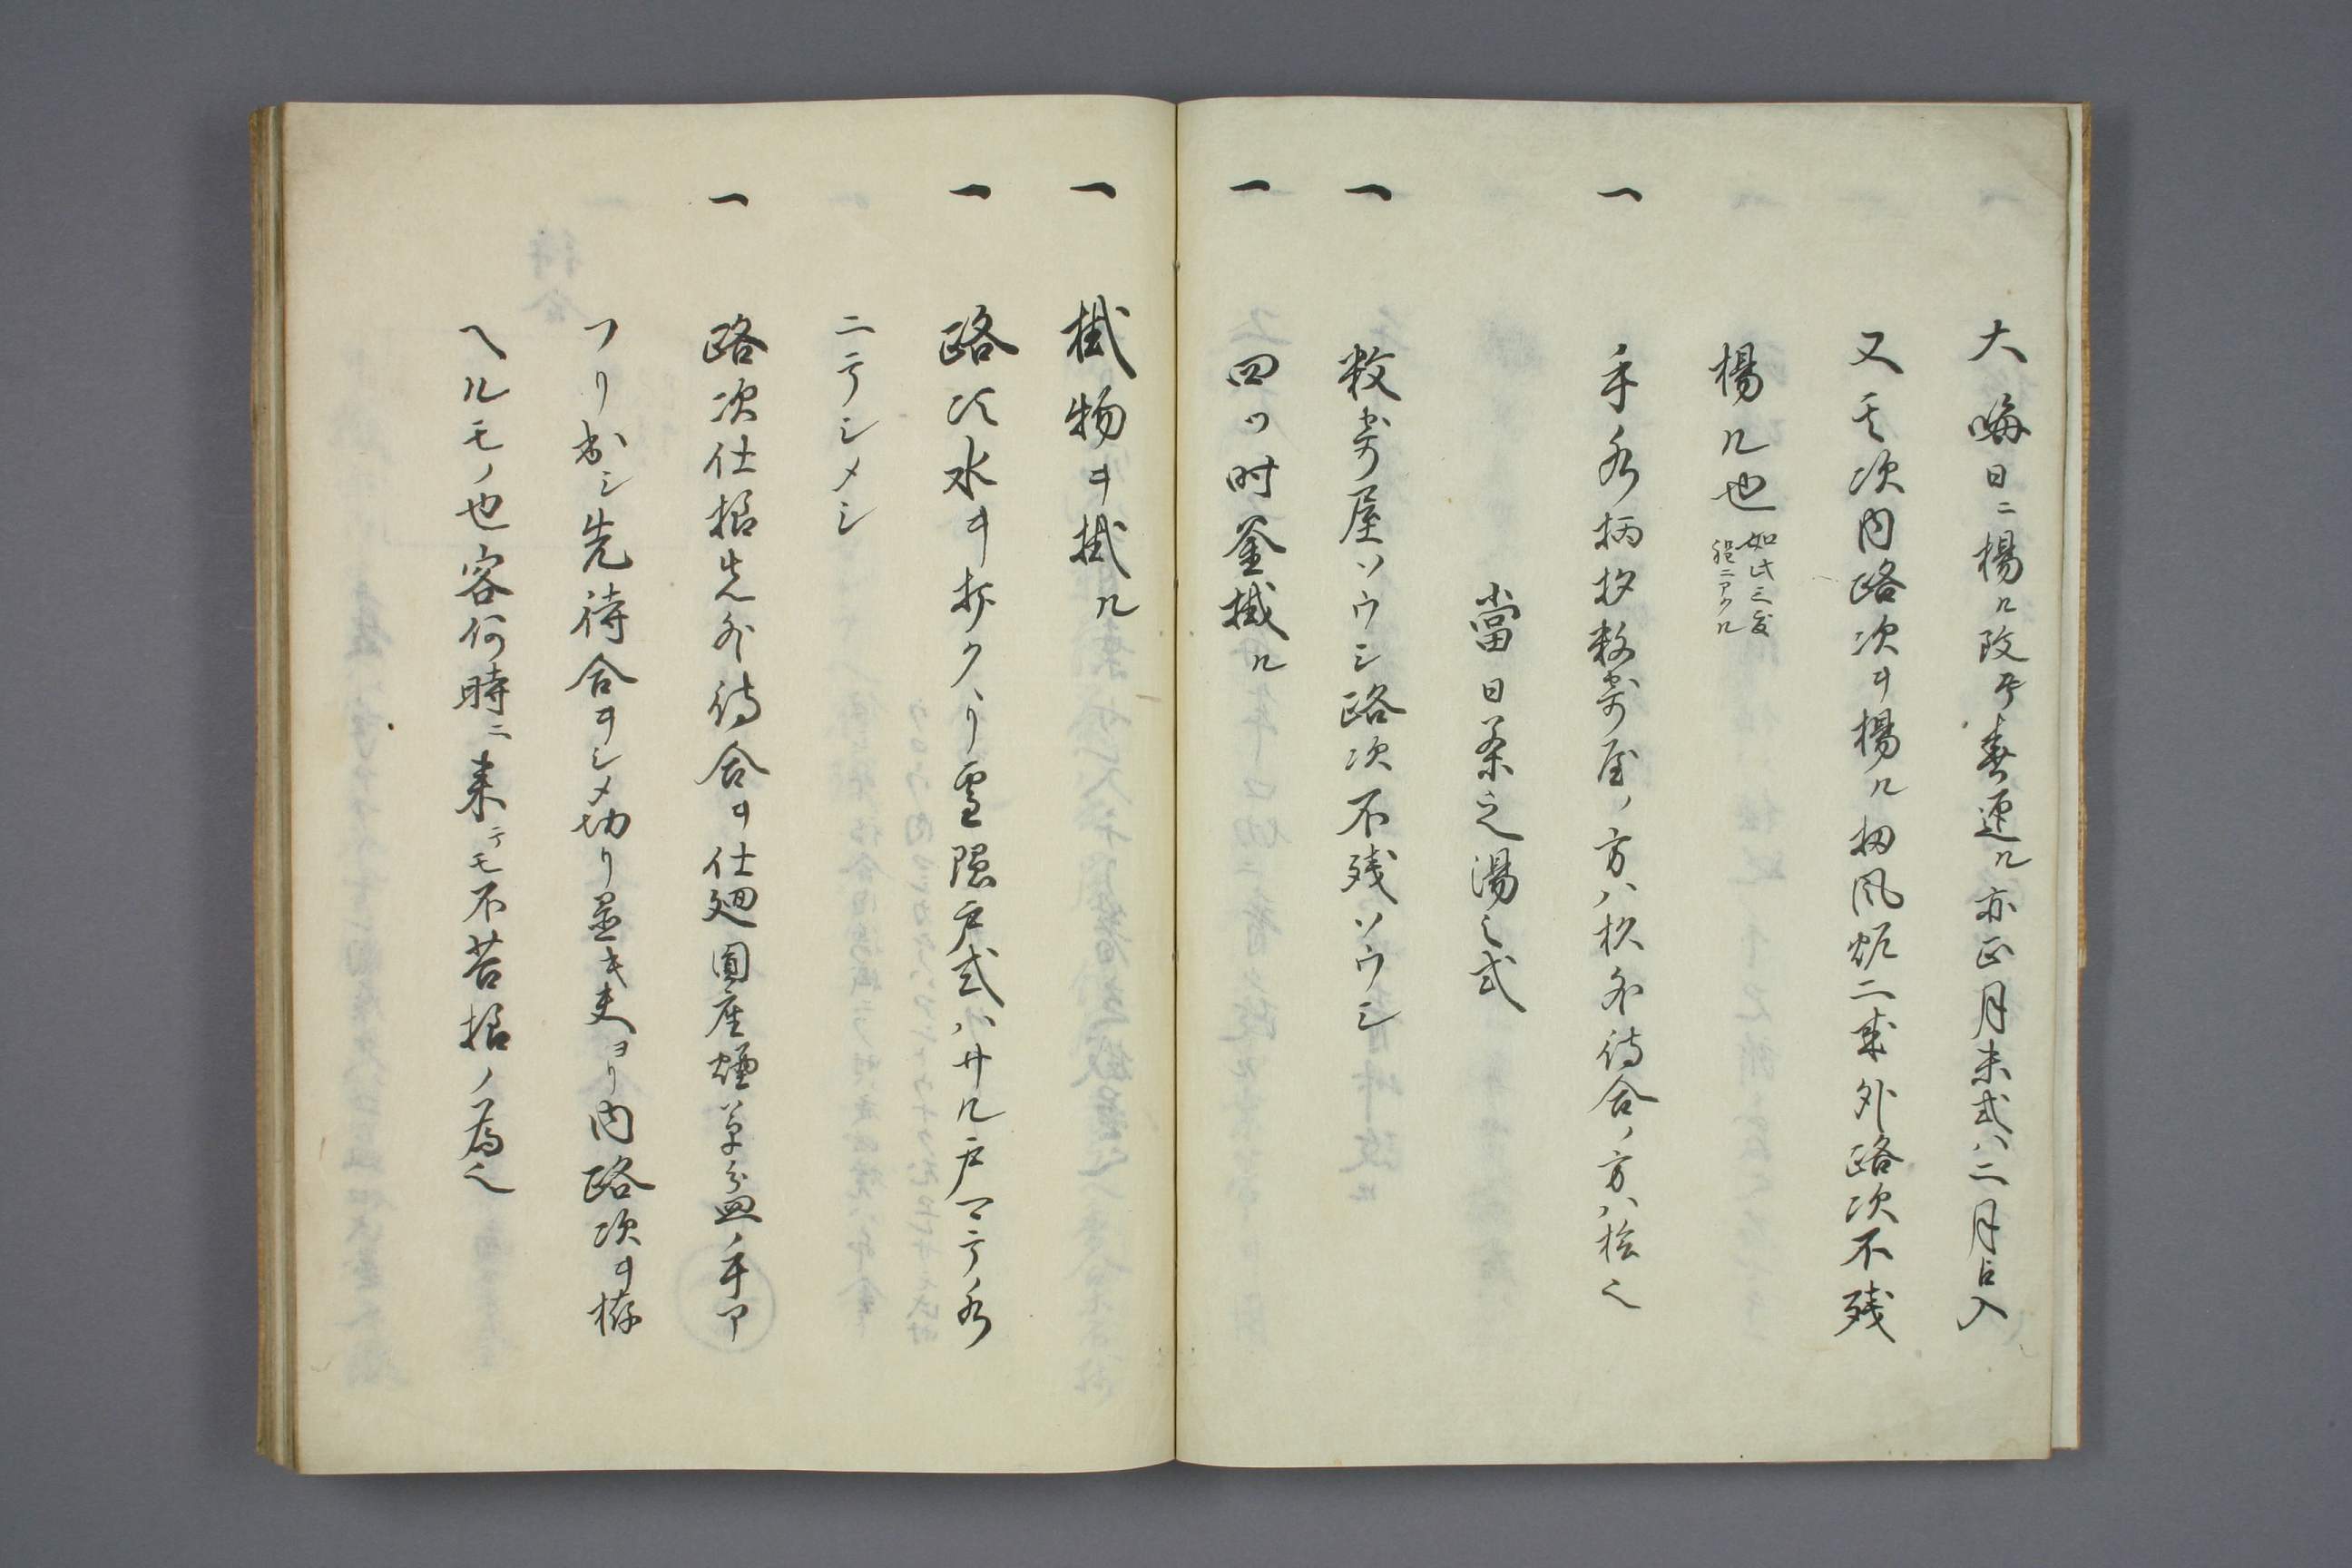 大晦日ニ揚ル改テ春通ル亦正月末或ハ二月口入
又其次内路次ヲ揚ル扨風炉二成外路次不残
揚ル也 如此三度ニアクル
一 手水柄杓数寄屋ノ方ハ杉外待合ノ方ハ桧也
当日茶之湯之式
一 数寄屋ソウシ路次不残ソウシ
一 四ツ时釜掛ル
一 掛物ヲ掛ル
一 路次水ヲ打クヽリ雪隠戸或ハサル戸マテ水
ニテシメシ
一 路次仕招先外待合ヲ仕廻圓座煙草盆手ア
フリ出シ先待合ヲシメ切リ置キ夫ヨリ内路次ヲ拵
ヘルモノ也客何時ニ来テモ不苦招ノ為也